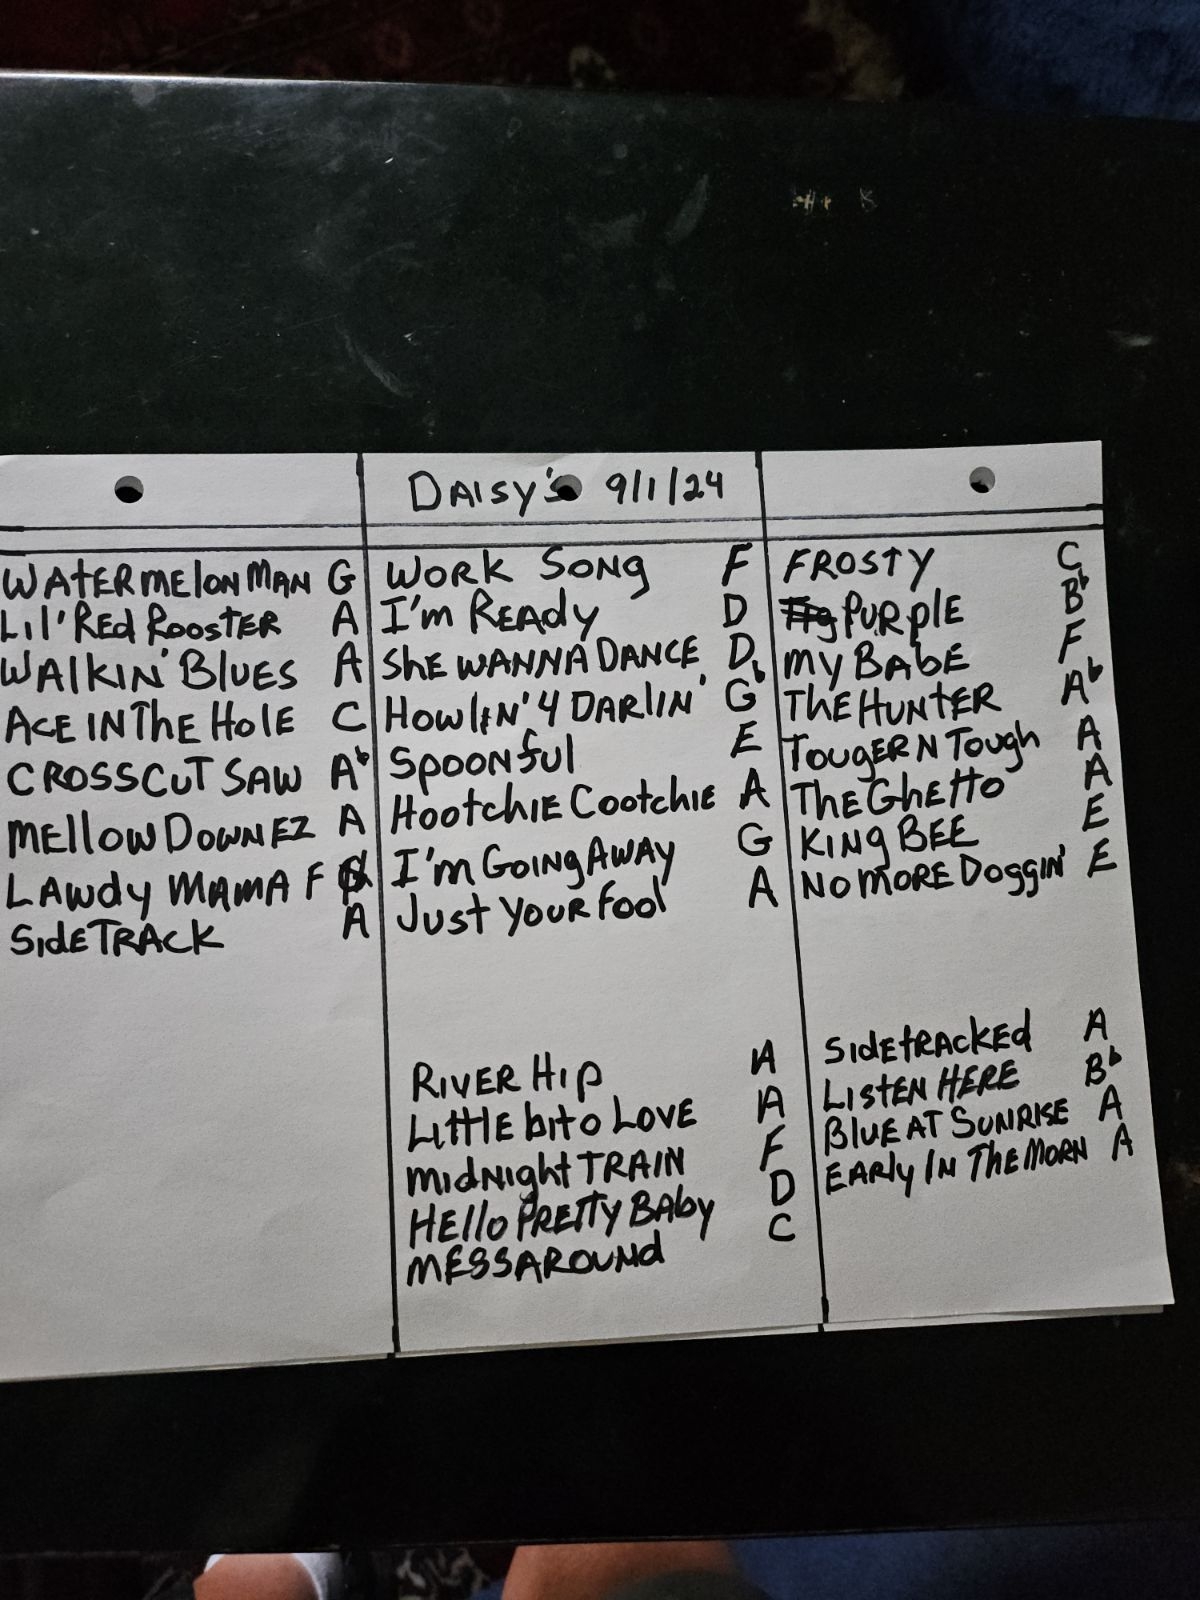 DAISY's 9/1/24
WATERMELON MAN G
Lil' REd ROOSTER A
WALKIN' BLUES A
ACE IN THE HOLE C
CROSSCUT SAW Ab
MELLOW DOWN EZ A
LAWdy MAMA F
SIdETRACK A
WORK SONG F
I'm REAdy D
SHE WANNA DANCE D
HOWLIN' 4 DARLIN' Gb
SPOONful E
HootchIE CootchIE A
I'm GOING AWAY G
Just YOUR fool A
RIVER HIP A
LittlE bit o LOVE A
MIdNIght TRAIN F
HEllo PREttY BAby D
MESSAROUNd C
FROSTY C
PURplE Bb
MY BAbE F
THE HUNTER Ab
TOUGER N Tough A
THE GhEtto A
KING BEE E
NO MORE DoggIN' E
SIdEtRACKEd A
LIStEN HERE Bb
BluE AT SUNRISE A
EARly IN THE MORN A